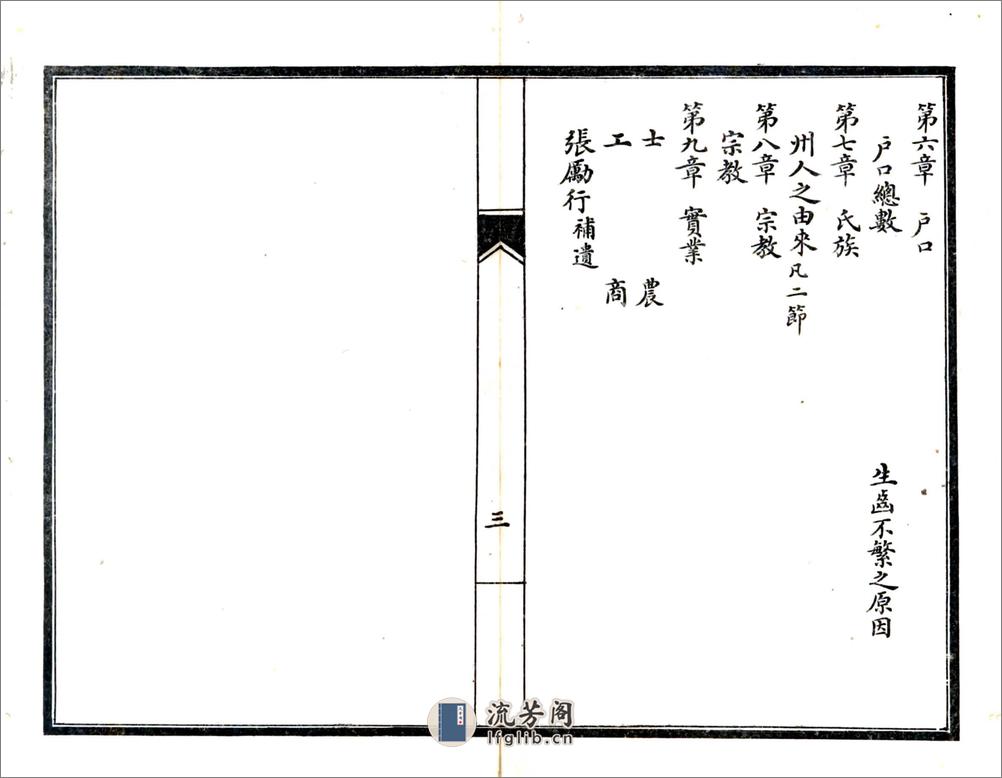 第六章 戶口
戶口總數 生齒不繁之原因
第七章 氏族
州人之由來凡二節
第八章 宗教
宗教
第九章 實業
士 農
工 商
張勵行補遺
三
流芳阁
lfglib.cn